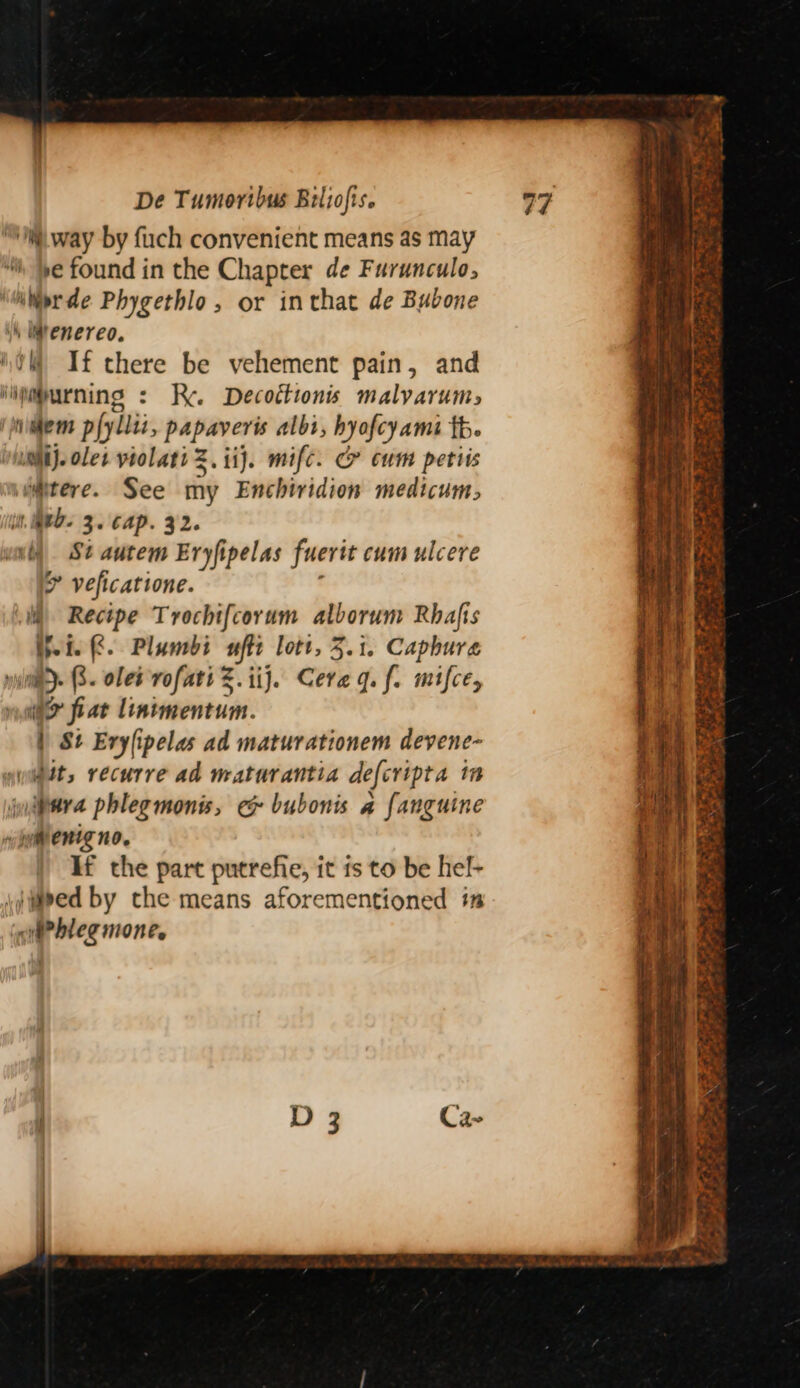 De Tumoribus Bilioſis. 77
way by ſuch convenient means as may
be found in the Chapter de Furunculo,
or de Phygethlo, or in that de Bubone
venereo.
If there be vehement pain, and
burning : ℞. Decoctionis malvarum,
pſyllii, papaveris albi, hyoſcyami ℔.
olei violati ℥. iij. miſc. & cum petiis
See my Enchiridion medicum,
3. cap. 32.
Si autem Eryſipelas fuerit cum ulcere
& veſicatione.
Recipe Trochiſcorum alborum Rhaſis
i. ß. Plumbi uſti loti, ʒ.i. Caphuræ
ß. olei roſati ℥. iij. Ceræ q. ſ. miſce,
& fiat linimentum.
Si Eryſipelas ad maturationem devene-
rit, recurre ad maturantia deſcripta in
cura phlegmonis, & bubonis à ſanguine
benigno.
If the part putrefie, it is to be hel-
ped by the means aforementioned in
Phlegmone.
D 3 Ca-